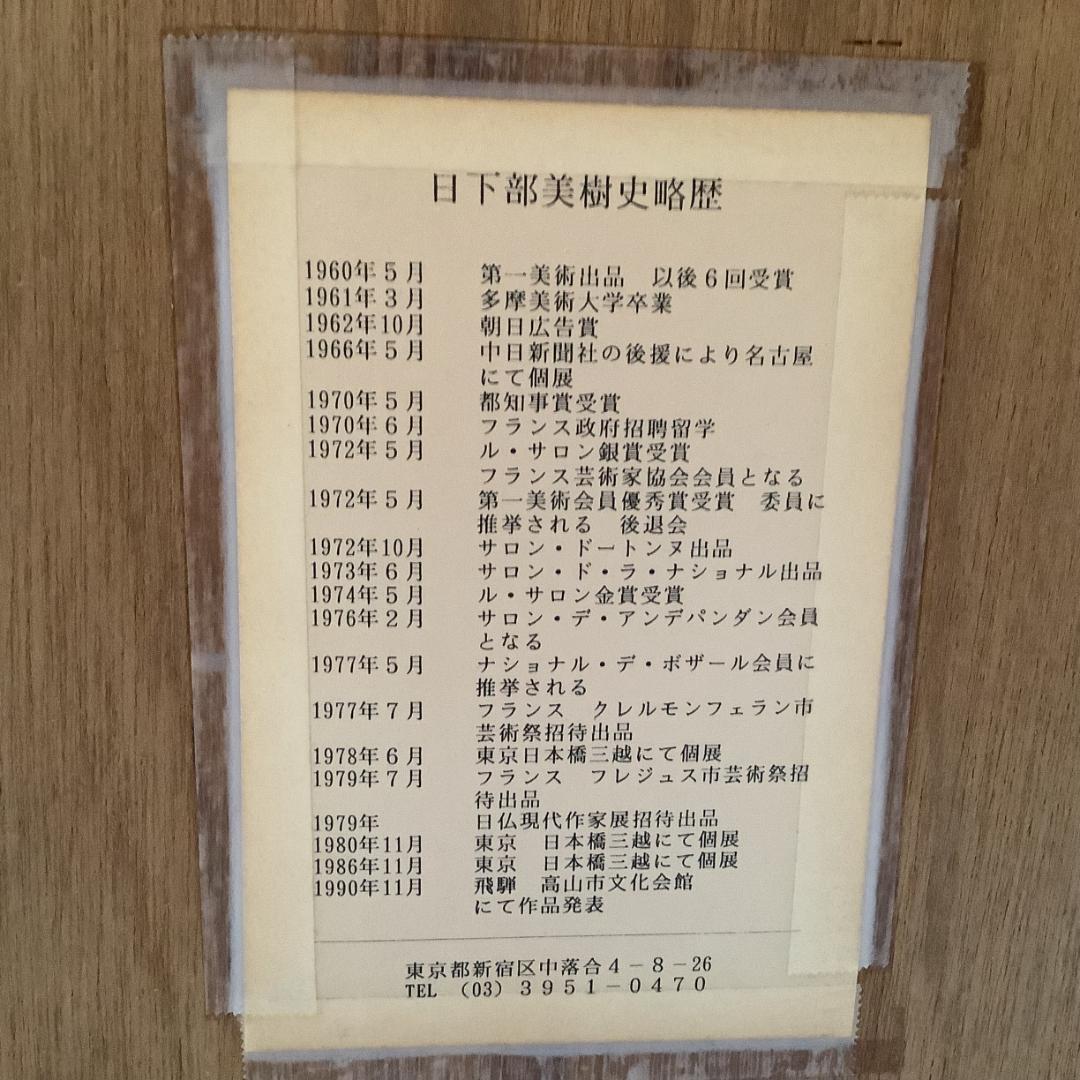 日下部美樹史略歴
1960年5月 第一美術出品 以後6回受賞
1961年3月 多摩美術大学卒業
1962年10月 朝日広告賞
1966年5月 中日新聞社の後援により名古屋
にて個展
1970年5月 都知事賞受賞
1970年6月 フランス政府招聘留学
1972年5月 ル・サロン銀賞受賞
フランス芸術家協会会員となる
1972年5月 第一美術会員優秀賞受賞 委員に
推挙される 後退会
1972年10月 サロン・ドートンヌ出品
1973年6月 サロン・ド・ラ・ナショナル出品
1974年5月 ル・サロン金賞受賞
1976年2月 サロン・デ・アンデパンダン会員
となる
1977年5月 ナショナル・デ・ボザール会員に
推挙される
1977年7月 フランス クレルモンフェラン市
芸術祭招待出品
1978年6月 東京日本橋三越にて個展
1979年7月 フランス フレジュス市芸術祭招
待出品
1979年 日仏現代作家展招待出品
1980年11月 東京 日本橋三越にて個展
1986年11月 東京 日本橋三越にて個展
1990年11月 飛騨 高山市文化会館
にて作品発表
東京都新宿区中落合4-8-26
TEL (03)3951-0470